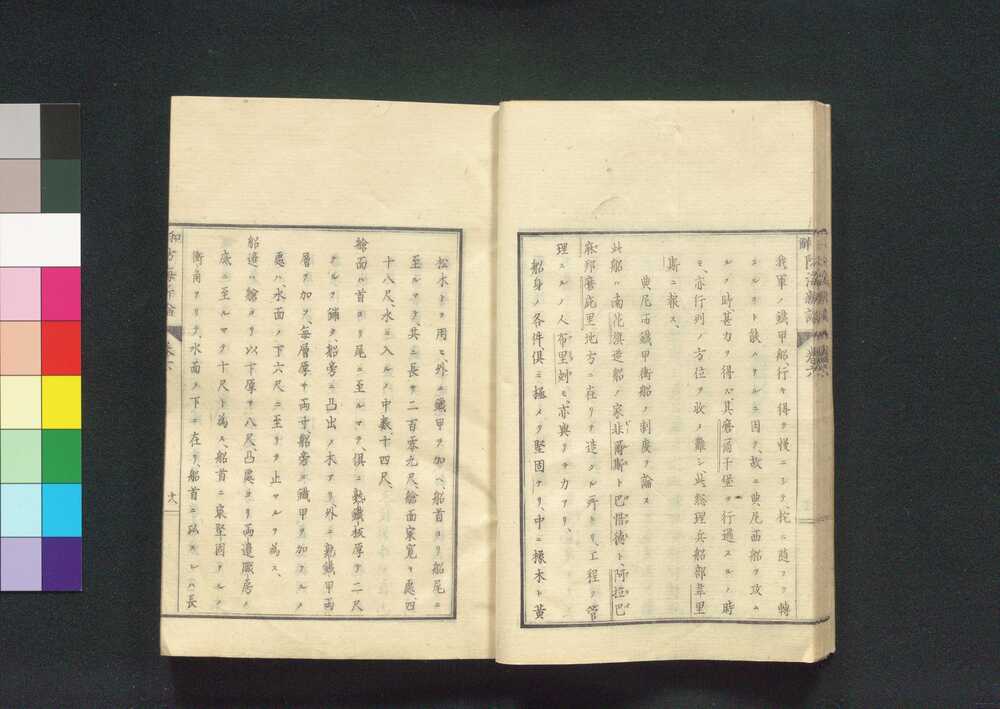 我軍ノ鐵甲船、行ヲ得ル慢ニシテ、柁ニ隨フテ轉
スルコト缺ハタルニ因テ、故ニ典尼西船ヲ攻ム
ルノ時甚力ヲ得ス、其磨爾干堡ヲ行過スルノ時
モ、亦行列ノ方位ヲ收メ難シ、此総理兵船部韋里
斯ニ報ス、
典尼西鐵甲衝船ノ制度ヲ論ス
此船ハ南花旗造船ノ家非爾斯ト巴惜德ト、阿拉巴
麻邦磨庇里地方ニ在リテ造ル所ナリ、工程ヲ管
理スルノ人布里剣モ、亦與リテ力アリ、
船身ノ各件、俱ニ極メテ堅固ナリ、中ニ橡木ト黃
松木トヲ用ヒ、外ニ鐵甲ヲ加ヘ、船首ヨリ船尾ニ
至ルマテ、共ニ長サ二百零九尺、艙面寂寬キ處、四
十八尺、水ニ入ルノ中數、十四尺、
艙面ハ首ヨリ尾ニ至ルマテ、俱ニ熟鐵板厚サ二尺
ナルヲ鋪ク、船旁ニ凸出ノ木アリ、外ニ熟鐵甲兩
層ヲ加フ、每層厚サ兩寸、船旁ニ鐵甲ヲ加フルノ
處ハ、水面ノ下六尺ニ至リテ止マルヲ為ス、
船邊ハ、艙ヨリ以下厚サ八尺、凸處ヨリ兩邊厰房ノ
底ニ至ルマテ十尺ト為ス、船首ニ寂堅固ナルノ
衝角アリテ、水面ノ下ニ在リ、船首ニ